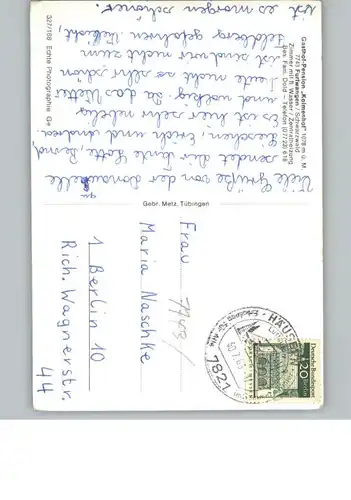 Gasthof-Pension „Kolmenhof“ 1078 m ü. M.
7743 Furtwangen / Schwarzwald
Zimmer mit fl. Wasser / Zentralheizung
Bes.: Fam. Dold – Telefon (07723) 618
Viele Grüße von der Donauquelle
sendet dir Tante Lotte, Bernd,
Lieschen, Erich und Andrea.
Es ist hier sehr neblig
und wolkig. Da das Wetter
heute nicht so sehr schön
ist sind wir nicht zum
Feldberg gefahren. Vielleicht
ist es morgen schöner.
527/168 Echte Photographie
Gebr. Metz, Tübingen
Frau
Maria Naschke
1 Berlin 10
Rich. Wagnerstr.
44
7743
7821
HÄUSERN
Deutsche Bundespost
20